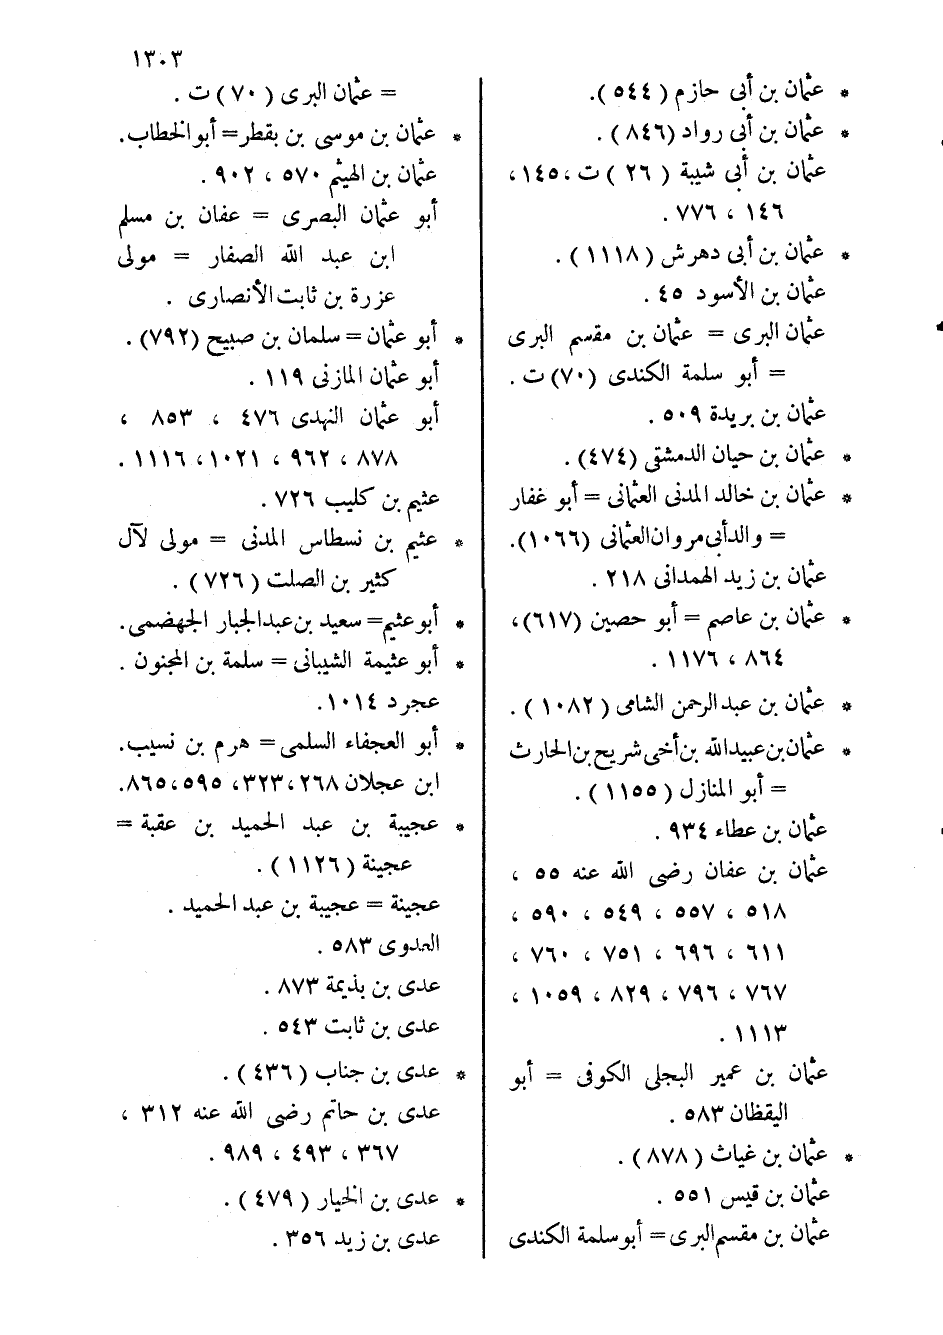 ١٣٠٣
* عثمان بن أبى حازم ( ٥٤٤ ).
* عثمان بن أبى رواد (٨٤٦) .
عثمان بن أبى شيبة ( ٢٦ ) ت ، ١٤٥ ،
١٤٦ ، ٧٧٦ .
* عثمان بن أبى دهرش ( ١١١٨ ) .
عثمان بن الأسود ٤٥ .
عثمان البرى = عثمان بن مقسم البرى
= أبو سلمة الكندى (٧٠) ت .
عثمان بن بريدة ٥٠٩ .
* عثمان بن حيان الدمشقى (٤٧٤) .
* عثمان بن خالد المدنى العثمانى = أبو غفار
= والد أبى مروان العثمانى (١٠٦٦).
عثمان بن زيد الهمدانى ٢١٨ .
* عثمان بن عاصم = أبو حصين (٦١٧) ،
٨٦٤ ، ١١٧٦ .
* عثمان بن عبد الرحمن الشامى ( ١٠٨٢ ) .
* عثمان بن عبيد الله بن أخى شريح بن الحارث
= أبو المنازل ( ١١٥٥ ) .
عثمان بن عطاء ٩٣٤ .
عثمان بن عفان رضى الله عنه ٥٥ ،
٥١٨ ، ٥٥٧ ، ٥٤٩ ، ٥٩٠ ،
٦١١ ، ٦٩٦ ، ٧٥١ ، ٧٦٠ ،
٧٦٧ ، ٧٩٦ ، ٨٢٩ ، ١٠٥٩ ،
١١١٣ .
عثمان بن عمير البجلى الكوفى = أبو
اليقظان ٥٨٣ .
* عثمان بن غياث ( ٨٧٨ ) .
عثمان بن قيس ٥٥١ .
عثمان بن مقسم البرى = أبو سلمة الكندى
= عثمان البرى ( ٧٠ ) ت .
* عثمان بن موسى بن بقطر = أبو الخطاب.
عثمان بن الهيثم ٥٧٠ ، ٩٠٢ .
أبو عثمان البصرى = عفان بن مسلم
ابن عبد الله الصفار = مولى
عزرة بن ثابت الأنصارى .
* أبو عثمان = سلمان بن صبيح (٧٩٢) .
أبو عثمان المازنى ١١٩ .
أبو عثمان النهدى ٤٧٦ ، ٨٥٣ ،
٨٧٨ ، ٩٦٢ ، ١٠٢١ ، ١١١٦ .
عثيم بن كليب ٧٢٦ .
* عثيم بن نسطاس المدنى = مولى لآل
كثير بن الصلت ( ٧٢٦ ) .
* أبو عثيم = سعيد بن عبد الجبار الجهضمى.
* أبو عثيمة الشيبانى = سلمة بن المجنون .
عجرد ١٠١٤ .
* أبو العجفاء السلمى = هرم بن نسيب.
ابن عجلان ٢٦٨ ، ٣٢٣ ، ٥٩٥ ، ٨٦٥.
* عجيبة بن عبد الحميد بن عقبة =
عجينة ( ١١٢٦ ) .
عجينة = عجيبة بن عبد الحميد .
العدوى ٥٨٣ .
عدى بن بذيمة ٨٧٣ .
عدى بن ثابت ٥٤٣ .
* عدى بن جناب ( ٤٣٦ ) .
عدى بن حاتم رضى الله عنه ٣١٢ ،
٣٦٧ ، ٤٩٣ ، ٩٨٩ .
* عدى بن الخيار ( ٤٧٩ ) .
عدى بن زيد ٣٥٦ .